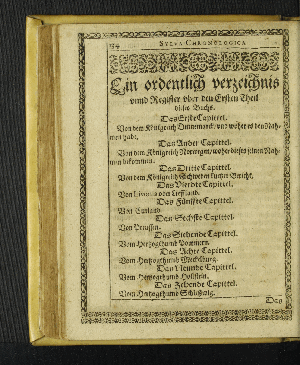 SYLVA CHRONOLOGICA
Ein ordentlich verzeichnis
vnnd Register vber den Ersten Theil
dieses Buchs.
Das Erste Capittel.
Von dem Königreich Dennemarck, vnd woher es den Nah-
men habe.
Das Ander Capittel.
Von dem Königreich Norwegen, woher dieses seinen Nah-
men bekommen.
Das Dritte Capittel.
Von dem Königreich Schweden kurtzer Bericht.
Das Vierdte Capittel.
Von Livonia oder Lieffland.
Das Fünffte Capittel.
Von Curland.
Das Sechste Capittel.
Von Preussen.
Das Siebende Capittel.
Vom Hertzogthumb Pommern.
Das Achte Capittel.
Vom Hertzogthumb Mechlburg.
Das Neundte Capittel.
Vom Hertzogthumb Holstein.
Das Zehende Capittel.
Vom Hertzogthumb Schleßwig.
Das